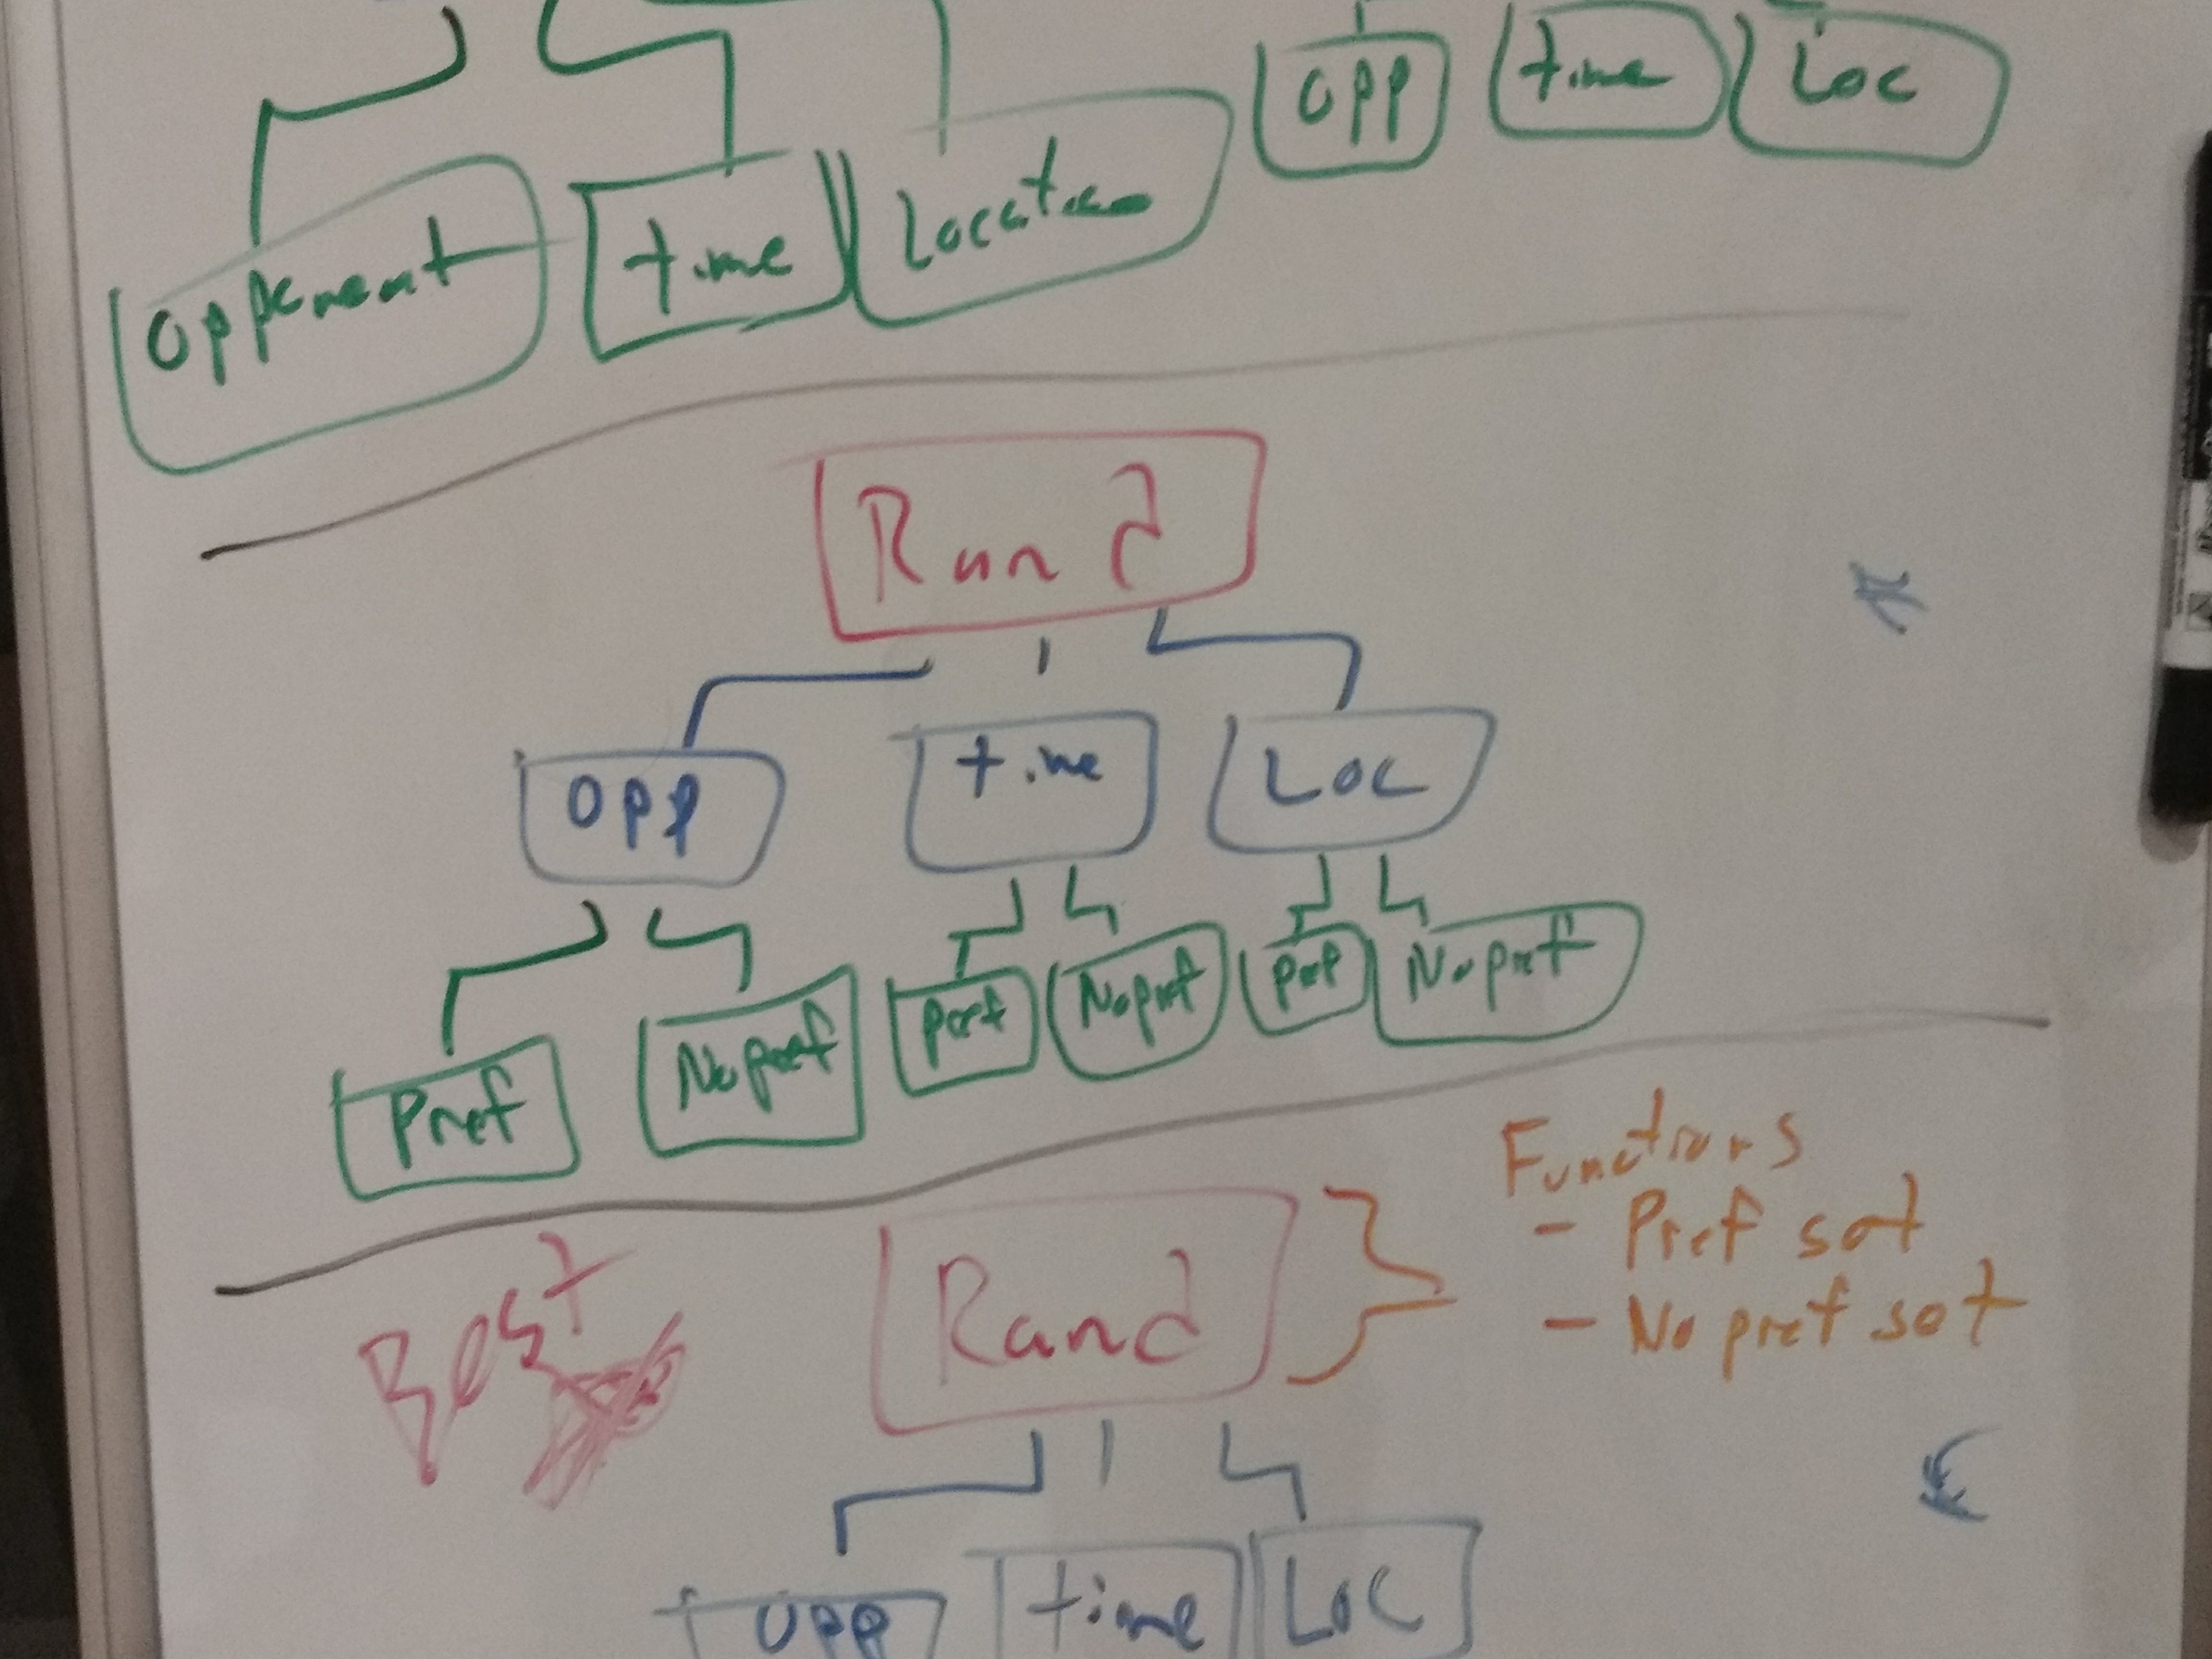 Opponent time Location
Opp time Loc
Rand
Opp time Loc
Pref No pref Pref No pref Pref No pref
Functions
- Pref sat
- No pref sat
Best
Rand
Opp time Loc